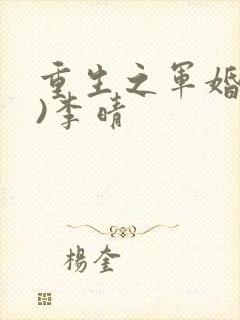 重生之军婚
)李晴
杨奎